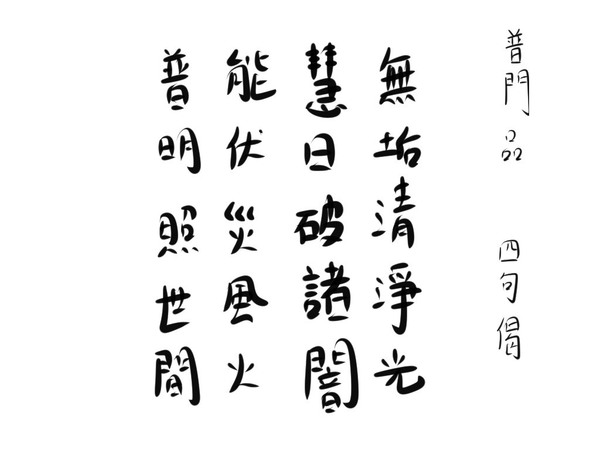 普門品 四句偈
無垢清淨光
慧日破諸闇
能伏災風火
普明照世間